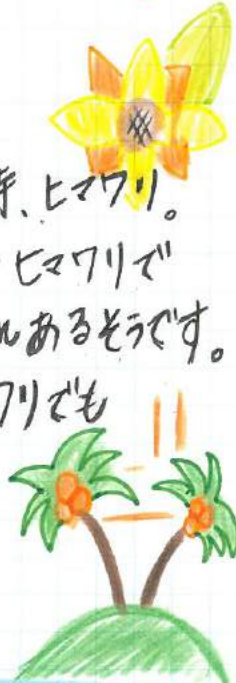 、ヒマワリ。
ヒマワリで
あるそうです。
ワリでも